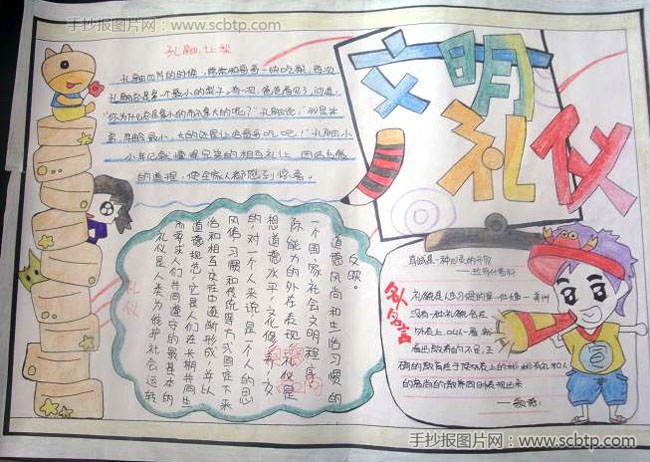 手抄报图片网：www.scbtp.com
文明
礼仪
孔融让梨
孔融四岁的时候，常常和哥哥一块吃梨。每次
孔融总是拿一个最小的梨子。有一次，爸爸看见了，问道：
“你为什么总是拿小的而不拿大的呢？”孔融说：“我是弟
弟，年龄最小，大的还是让给哥哥吃吧！”孔融小
小年纪就懂得兄弟的相互礼让、团结友爱
的道理，使全家人都感到惊喜。
礼仪是人类为维护社会运转
而要求人们共同遵守的最基本的
道德规范，它是人们在长期共同生
活和相互交往中逐渐形成，并以
风俗、习惯和传统等方式固定下来
的，对一个人来说是一个人的思
想道德水平、文化修养、交
际能力的外在表现，礼仪是
一个国家社会文明程度、
道德风尚和生活习惯的
反映。
礼仪
名人名言
真诚是一种心灵的开放
——拉罗什富科
礼貌是人类
外表上
的最高的教养同时表现出来
手抄报图片网：www.scbtp.com